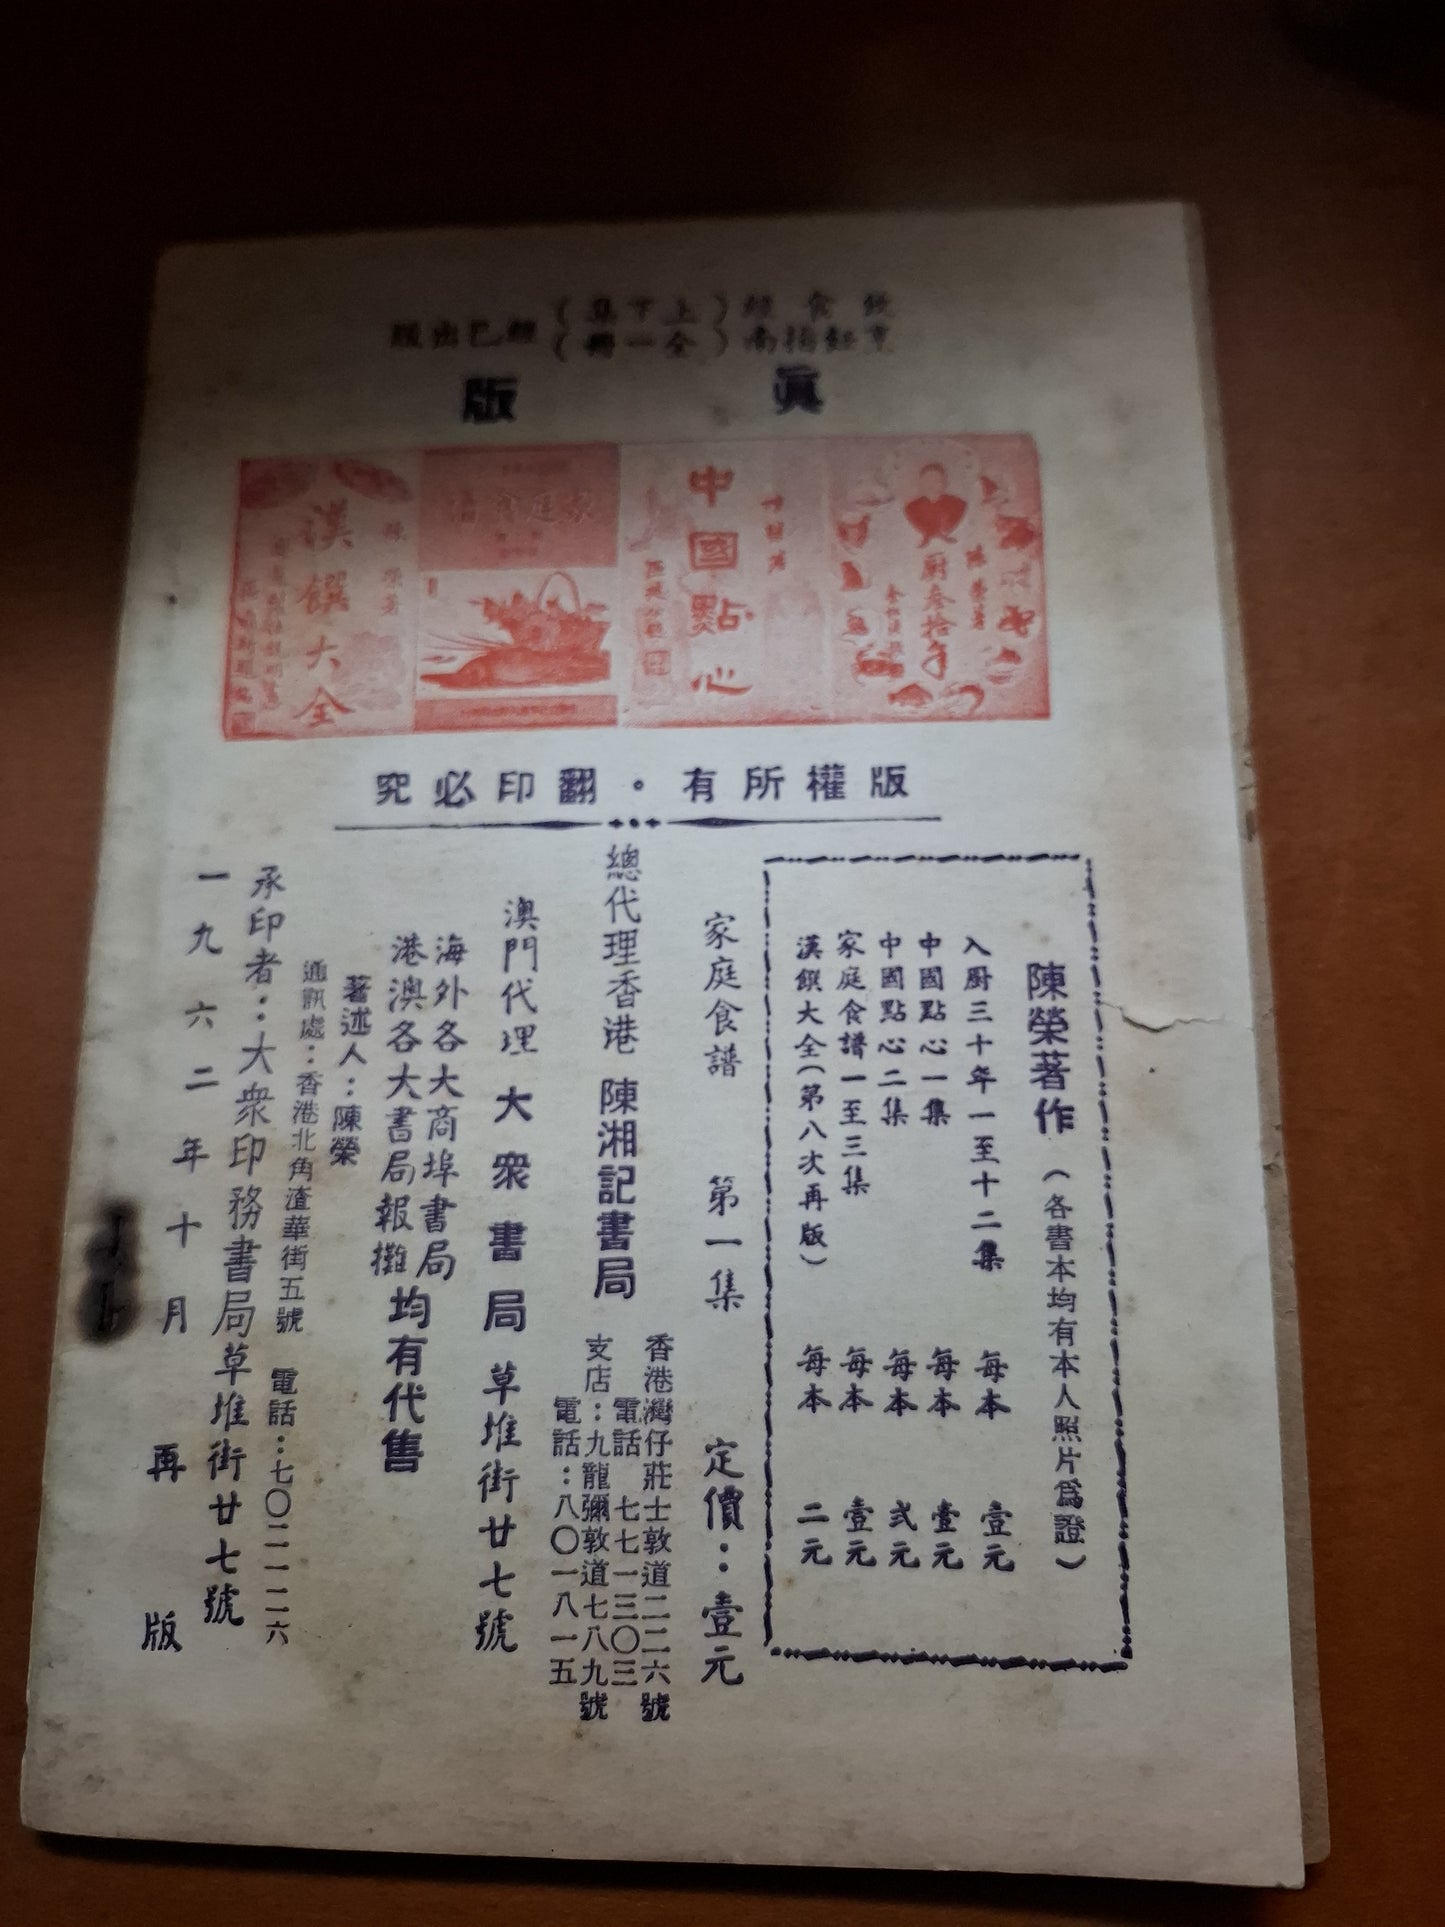 飲食經（上下集）
烹飪指南（全一冊）
經已出版
眞版
陳榮著
入廚叁拾年
中國點心
家庭食譜
陳榮著
漢饌大全
版權所有。翻印必究
陳榮著作（各書本均有本人照片爲證）
入厨三十年一至十二集 每本 壹元
中國點心一集 每本 壹元
中國點心二集 每本 弍元
家庭食譜一至三集 每本 壹元
漢饌大全（第八次再版） 每本 二元
家庭食譜 第一集 定價：壹元
總代理香港 陳湘記書局
香港灣仔莊士敦道二二六號
電話 七七一三〇三
支店：九龍彌敦道七八九號
電話：八〇一八一五
澳門代理 大衆書局 草堆街廿七號
海外各大商埠書局
港澳各大書局報攤
均有代售
著述人：陳榮
通訊處：香港北角渣華街五號 電話：七〇二一二六
承印者：大衆印務書局草堆街廿七號
一九六二年十月再版